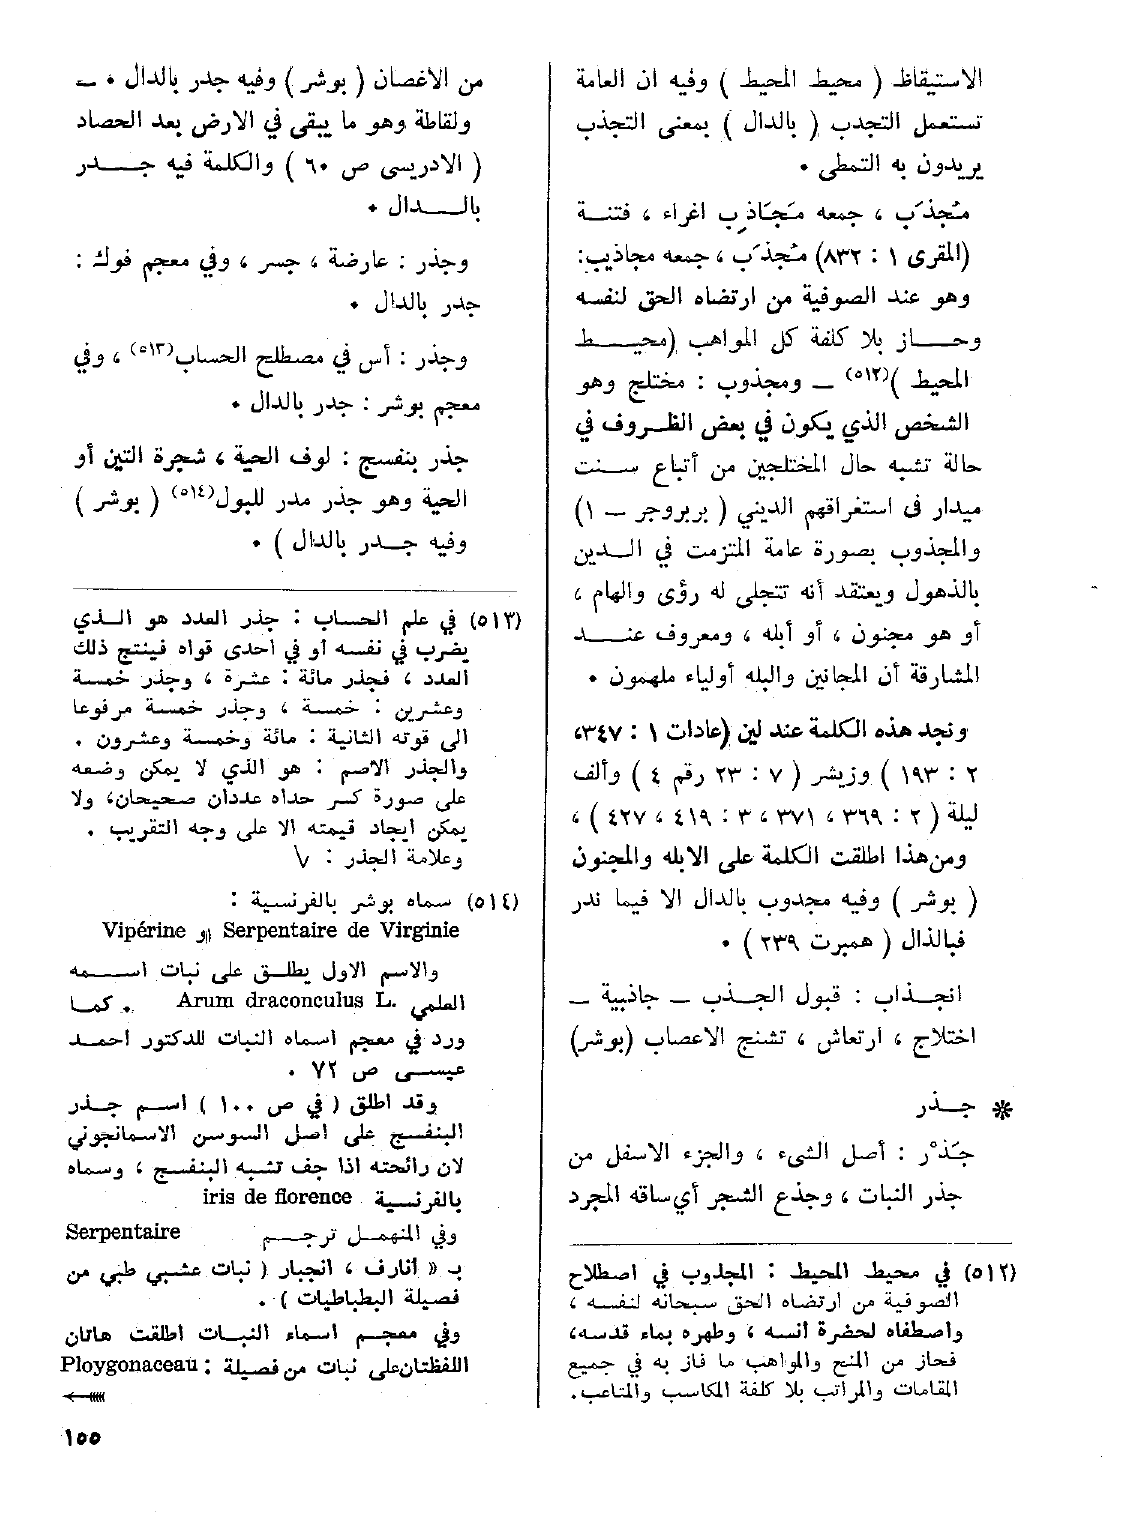 الاستيقاظ ( محيط المحيط ) وفيه ان العامة
تستعمل التجدب ( بالدال ) بمعنى التجذب
يريدون به التمطي ٠
مُجذَب ، جمعه مَجَاذِب اغراء ، فتنــة
(المقرى ١ : ٨٣٢) مُجذَب ، جمعه مجاذيب:
وهو عند الصوفية من ارتضاه الحق لنفسه
وحـــاز بلا كلفة كل المواهب (محيـــط
المحيط )(٥١٢) ــ ومجذوب : مختلج وهو
الشخص الذي يكون في بعض الظــروف في
حالة تشبه حال المختلجين من أتباع ســنت
ميدار فى استغراقهم الديني ( بربروجر ــ ١)
والمجذوب بصورة عامة المتزمت في الــدين
بالذهول ويعتقد أنه تتجلى له رؤى والهام ،
أو هو مجنون ، أو أبله ، ومعروف عنـــد
المشارقة أن المجانين والبله أولياء ملهمون ٠
ونجد هذه الكلمة عند لين (عادات ١ : ٣٤٧،
٢ : ١٩٣ ) وزيشر ( ٧ : ٢٣ رقم ٤ ) وألف
ليلة ( ٢ : ٣٦٩ ، ٣٧١ ، ٣ : ٤١٩ ، ٤٢٧ ) ،
ومن هذا اطلقت الكلمة على الابله والمجنون
( بوشر ) وفيه مجدوب بالدال الا فيما ندر
فبالذال ( همبرت ٢٣٩ ) ٠
انجــذاب : قبول الجــذب ــ جاذبية ــ
اختلاج ، ارتعاش ، تشنج الاعصاب (بوشر)
* جــذر
جَذْر : أصل الشيء ، والجزء الاسفل من
جذر النبات ، وجذع الشجر أي ساقه المجرد
(٥١٢) في محيط المحيط : المجذوب في اصطلاح
الصوفية من ارتضاه الحق سبحانه لنفسه ،
واصطفاه لحضرة أنسه ، وطهره بماء قدسه،
فحاز من المنح والمواهب ما فاز به في جميع
المقامات والمراتب بلا كلفة المكاسب والمتاعب.
من الاغصان ( بوشر ) وفيه جدر بالدال ٠ ــ
ولقاطة وهو ما يبقى في الارض بعد الحصاد
( الادريسى ص ٦٠ ) والكلمة فيه جـــدر
بالــــدال ٠
وجذر : عارضة ، جسر ، وفي معجم فوك :
جدر بالدال ٠
وجذر : أس في مصطلح الحساب(٥١٣) ، وفي
معجم بوشر : جدر بالدال ٠
جذر بنفسج : لوف الحية ، شجرة التنين أو
الحية وهو جذر مدر للبول(٥١٤) ( بوشر )
وفيه جــدر بالدال ) ٠
(٥١٣) في علم الحساب : جذر العدد هو الــذي
يضرب في نفسه أو في احدى قواه فينتج ذلك
العدد ، فجذر مائة : عشرة ، وجذر خمسة
وعشرين : خمسة ، وجذر خمسة مرفوعا
الى قوته الثانية : مائة وخمسة وعشرون .
والجذر الاصم : هو الذي لا يمكن وضعه
على صورة كسر حداه عددان صحيحان، ولا
يمكن ايجاد قيمته الا على وجه التقريب .
وعلامة الجذر : √
(٥١٤) سماه بوشر بالفرنسية :
Serpentaire de Virginie او Vipérine
والاسم الاول يطلــق على نبات اســـمه
العلمي Arum draconculus L. . كمــا
ورد في معجم اسماء النبات للدكتور احمــد
عيســى ص ٧٢ ٠
وقد اطلق ( في ص ١٠٠ ) اســم جــذر
البنفسج على اصل السوسن الاسمانجوني
لان رائحته اذا جف تشبه البنفسج ، وسماه
بالفرنسية iris de florence
وفي المنهــل ترجــم Serpentaire
بـ « أنارف ، انجبار ( نبات عشبي طبي من
فصيلة البطباطيات ) .
وفي معجــم اسماء النبــات اطلقت هاتان
اللفظتان على نبات من فصيلة : Ploygonaceau
١٥٥